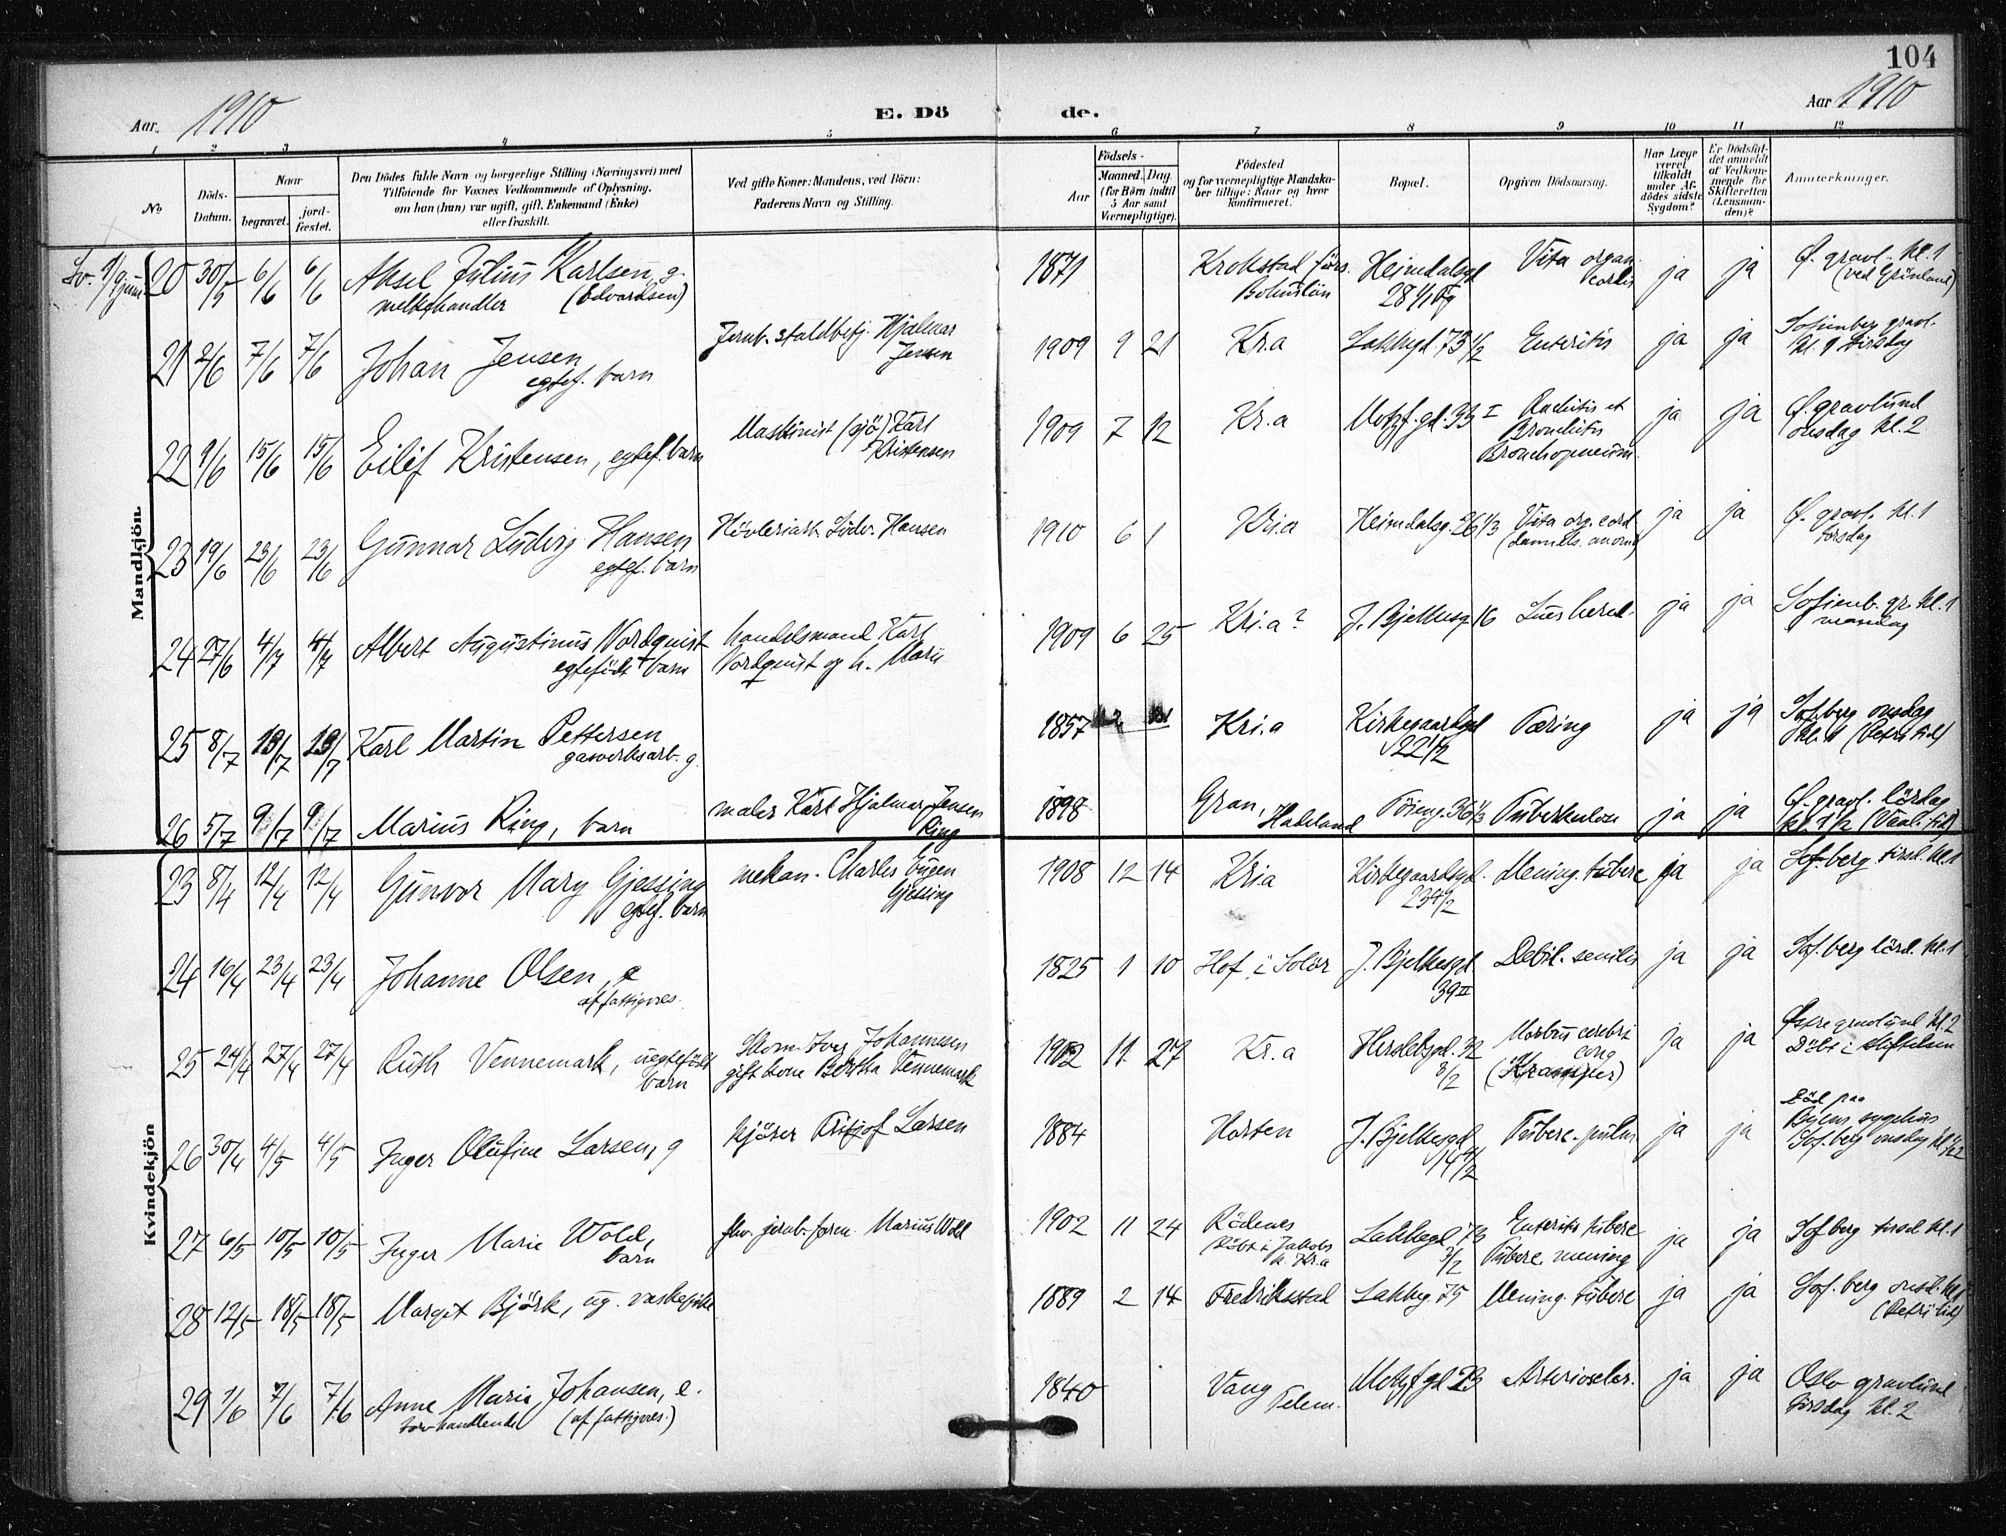 104
Aar. 1910 E. Dö de. Aar 1910
1 2 3 4 5 6 7 8 9 10 11 12
No Döds-Datum. Naar begravet. jordfæstet.
Den Dödes fulde Navn og borgerlige Stilling (Næringsvei) med
Tilföiende for Voxnes Vedkommende af Oplysning,
om han (hun) var ugift, gift, Enkemand (Enke)
eller fraskilt.
Ved gifte Koner: Mandens, ved Börn:
Faderens Navn og Stilling.
Födsels-
Aar Maaned. Dag.
(for Börn indtil
5 Aar samt
Værnepligtige).
Födested
og for værnepligtige Mandska-
ber tillige: Naar og hvor
konfirmeret.
Bopæl.
Opgiven Dödsaarsag.
Har Læge
været
tilkaldt
under Af-
dödes sidste
Sygdom?
Er Dödsfal-
det anmeldt
af Vedkom-
mende for
Skifteretten
(Lensman-
den)?
Anmerkninger.
Mandkjön
20 30/5 6/6 6/6 Aksel Julius Karlsen, g. 1871 Krokstad Heimdalsgd Vita organ. ja ja Ø. gravl. kl. 1
melkehandler (Edvardsen) Bohuslän cordis (ved Grönland)
21 2/6 7/6 7/6 Johan Jensen Jernb. staldbetj. Hjalmar Jensen 1909 9 21 Kr.a Lakkegd 73 1/2 Enteritis ja ja Sofienberg gravl.
egtef. barn kl. 1 tirsdag
22 9/6 15/6 15/6 Eilif Kristensen, egtef. barn Maskinist (sjö) Karl Kristensen 1909 7 12 Kr.a Motzf. gd. 33 I Rachitis et ja ja Ø. gravlund
Bronchitis onsdag kl. 2
Bronchopneum.
23 19/6 23/6 23/6 Gunnar Ludvig Hansen Hövleriarb. Ludv. Hansen 1910 6 1 Kr.a Heimdalsg. 26 1/3 Vita org. cord ja ja Ø. gravl. kl. 1
egtef. barn torsdag
24 27/6 4/7 4/7 Albert Augustinus Nordquist handelsmand Karl 1909 6 25 Kr.a? J. Bjelkesg 16 Lues hered. ja ja Sofienb. gr. kl. 1
egtefödt barn Nordquist og h. Marie mandag
25 8/7 13/7 13/7 Karl Martin Pettersen 1857 Kr.a Kirkegaardsgd Tæring ja ja Sof.berg onsdag
gasverksarb. g. 22 1/2 kl. 1 (Petri tid)
26 5/7 9/7 9/7 Marius Ring, barn maler Karl Hjalmar Jensen Ring 1898 Gran, Hadeland Töieng. 36 1/3 Tuberkulose ja ja Ø. gravl. lördag
Kvindekjön
23 8/4 12/4 12/4 Gunvor Mary Gjessing mekan. Charles Eugen Gjessing 1908 12 14 Kr.a Kirkegaardsgd. Mening. tuberc ja ja Sof.berg tirsd. kl. 1
egtef. barn
24 16/4 23/4 23/4 Johanne Olsen, e 1825 1 10 Hof i Solör J. Bjelkesgd Debil. senilis ja ja Sof.berg lörd. kl. 1
af fattigves. 39 II
25 24/4 27/4 27/4 Ruth Vennemark, uegtefödt Skom. Johannesen 1902 11 27 Kr.a Herslebsgd. Morbus cerebri ja ja Østre gravlund kl. 2
barn gift kone Bertha Vennemark 8/2 (Kramper) Döbt i stiftelsen
26 30/4 4/5 4/5 Inger Olufine Larsen, g kjörer Fritjof Larsen 1884 Horten J. Bjelkesgd Tuberc. pulm ja ja Död paa
Byens sygehus
Sof.berg onsdag
27 6/5 10/5 10/5 Inger Marie Wold, fhv. jernb. form. Marius Wold 1902 11 24 Rödenes Lakkegd 73 Enteritis tuberc ja ja Sofberg tirsd kl. 1
barn Döbt i Jakobs k. Kr.a 3/2 Tuberc. mening
28 12/5 18/5 18/5 Margit Björk, ug. vaskepike 1889 2 14 Fredrikstad Lakkeg 75 Mening. tuberc ja ja Sof.berg onsd. kl. 1
(Petri tid)
29 1/6 7/6 7/6 Anne Marie Johansen, e. 1840 Vang Motzf gd 23 Arterioscler. ja ja Oslo gravlund
torvhandlende (af fattigves.) Telem. tirsdag kl. 2